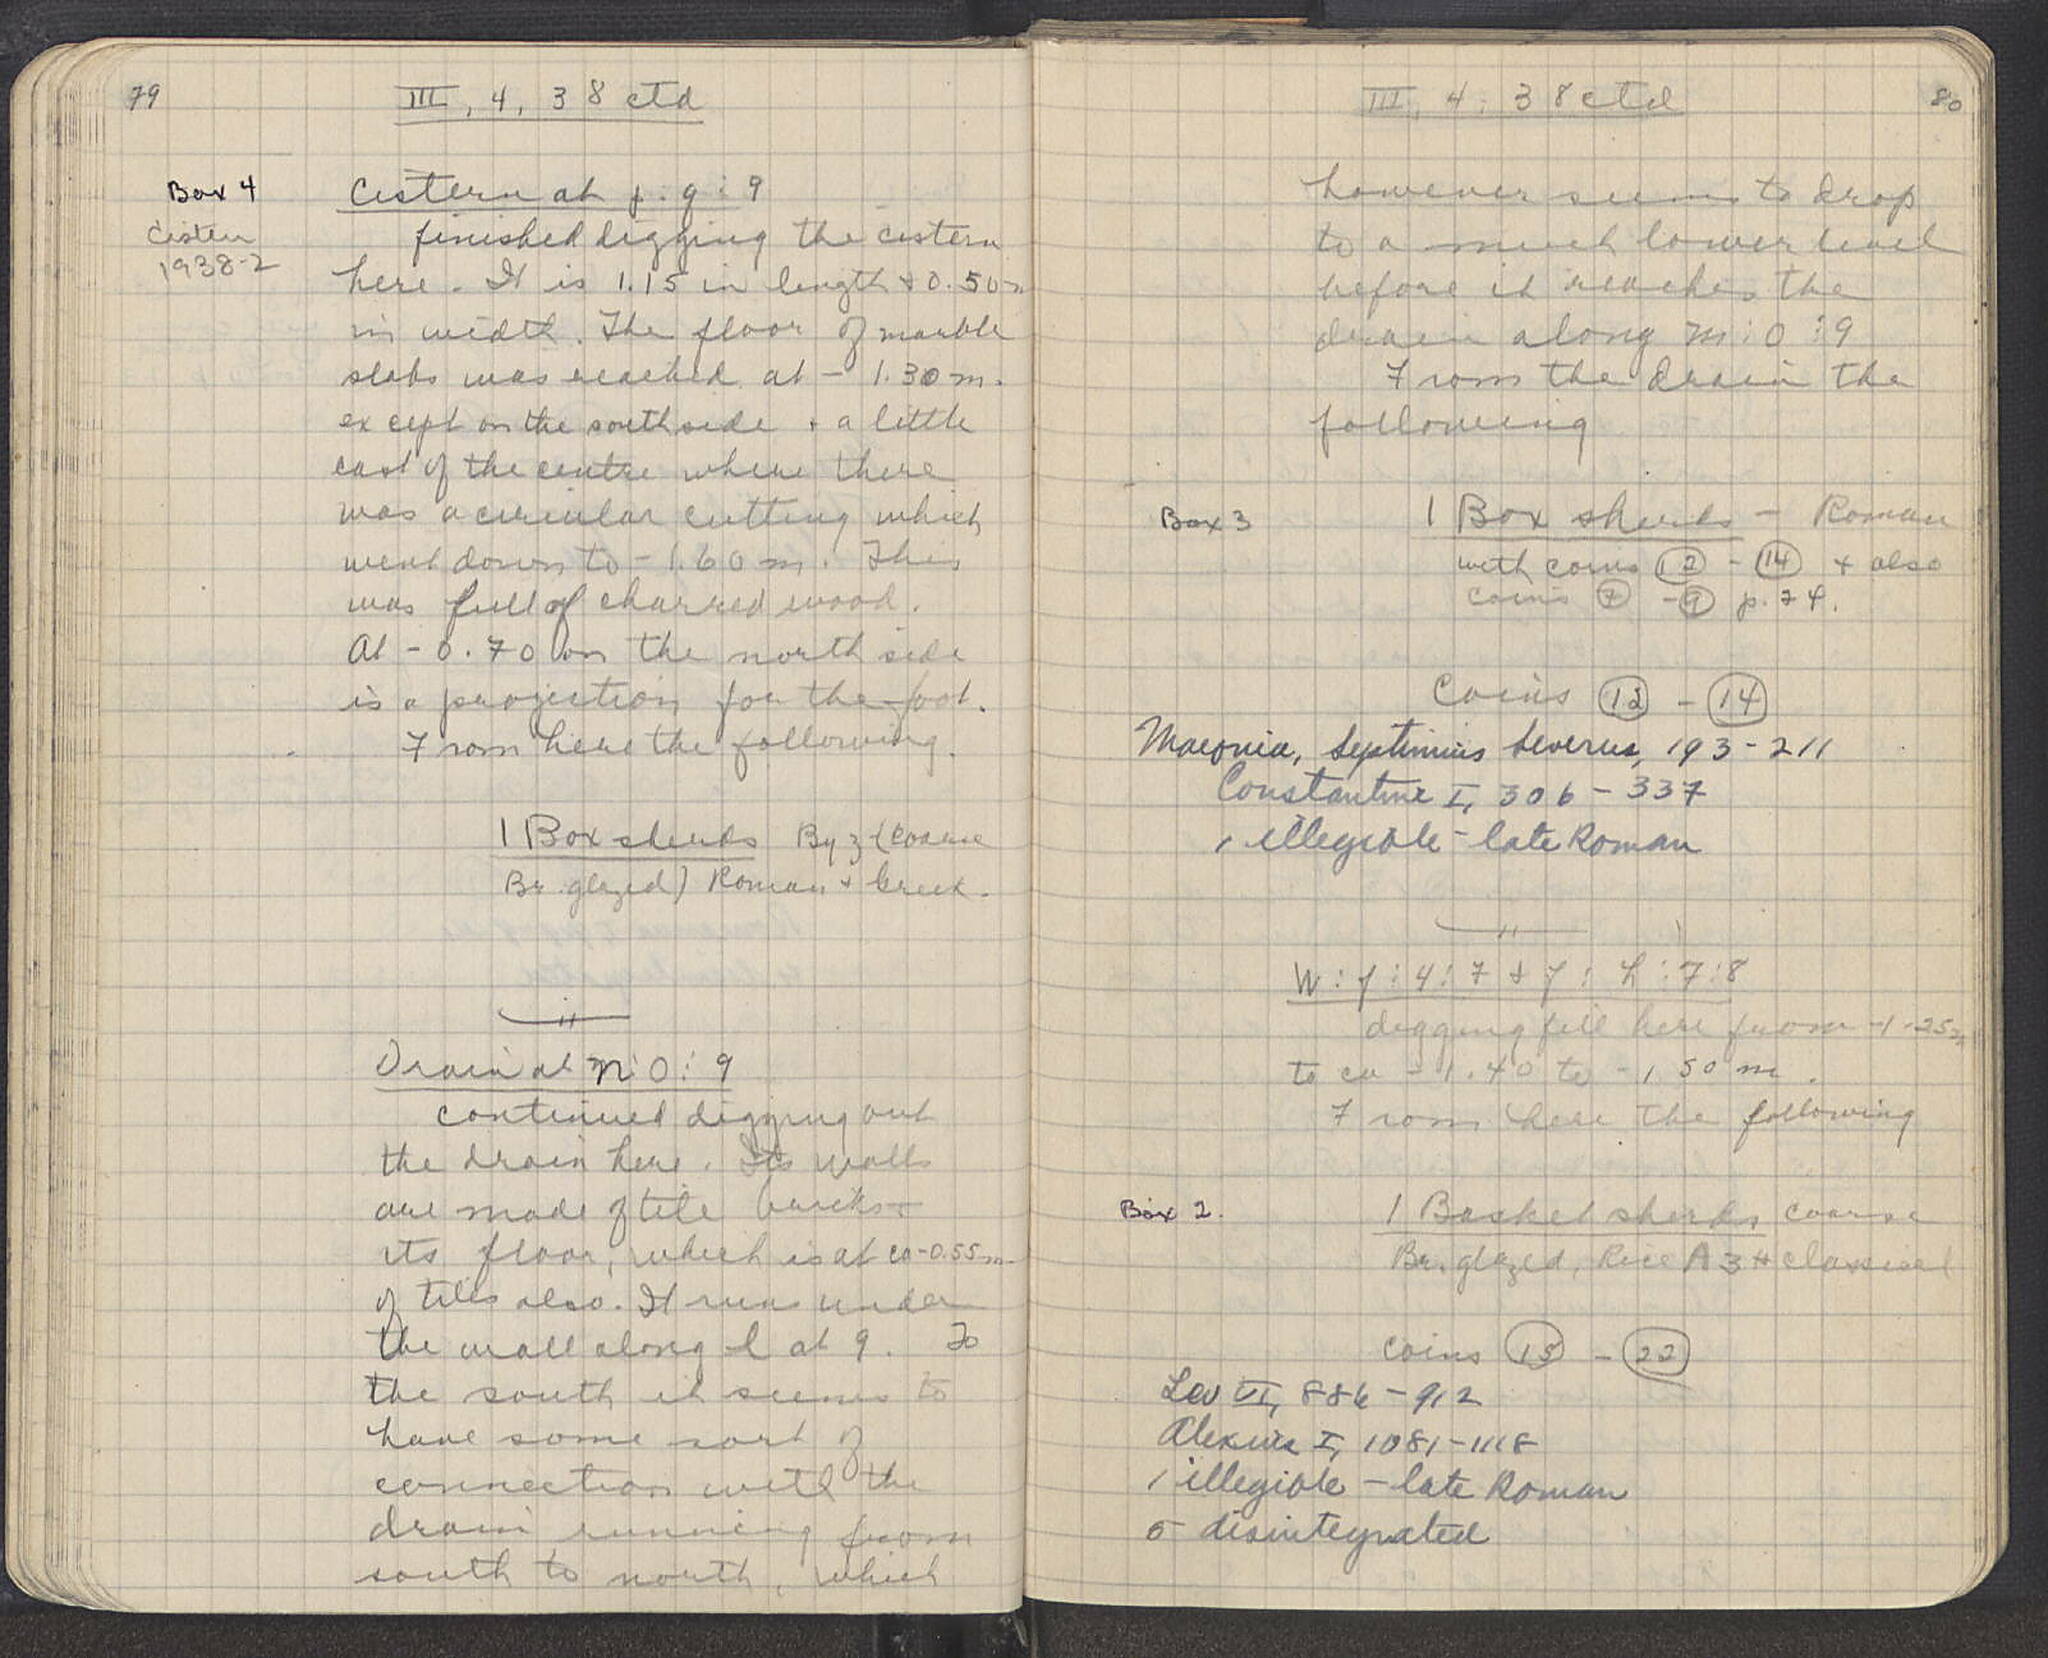 79
III, 4, 38 ctd
Box 4
Cistern
1938-2
Cistern at p: q: 9
finished digging the cistern
here. It is 1.15 in length + 0.50 m
in width. The floor of marble
slabs was reached at - 1.30 m.
except on the south side + a little
east of the centre where there
was a circular cutting which
went down to - 1.60 m. This
was full of charred wood.
At - 0.70 on the north side
is a projection for the foot.
From here the following.
1 Box sherds Byz (coarse
Br. glazed) Roman + Greek.
"
Drain at M: O: 9
continued digging out
the drain here. Its walls
are made of tile bricks +
its floor, which is at ca -0.55 m
of tiles also. It runs under
the wall along l at 9. To
the south it seems to
have some sort of
connection with the
drain running from
south to north, which
III, 4: 38 ctd
80
however seems to drop
to a much lower level
before it reaches the
drain along M: O: 9
From the drain the
following
Box 3
1 Box sherds - Roman
with coins 12 - 14 + also
coins 7 - 9 p. 74.
Coins 12 - 14
Maeonia, Septimius Severus, 193-211
Constantine I, 306-337
1 illegible - late Roman
"
W: f: 4: 7 + f: h: 7: 8
digging fill here from -1.25 m
to ca -1.40 to -1.50 m.
From here the following
Box 2.
1 Basket sherds coarse
Br. glazed, Rice A 3 + classical
coins 15 - 22
Leo VI, 886-912
Alexius I, 1081-1118
1 illegible - late Roman
5 disintegrated